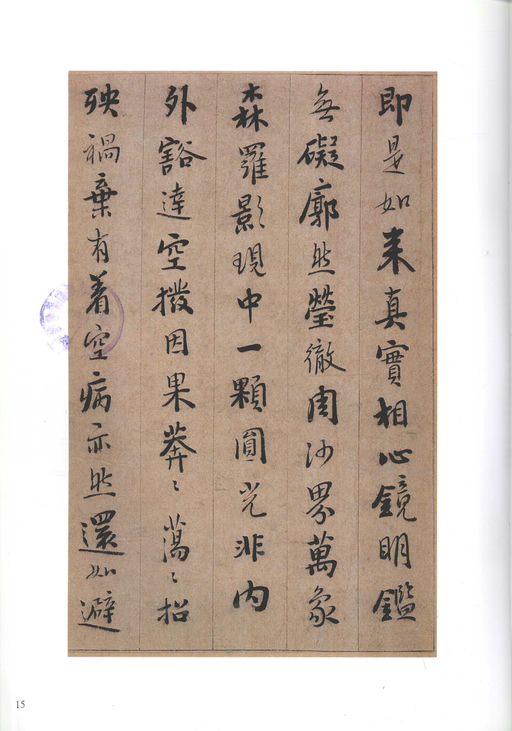 即是如来真實相心鏡明鑑
無礙廓然瑩徹周沙界萬象
森羅影現中一顆圓光非内
外豁達空撥因果莽〻蕩〻招
殃禍棄有着空病亦然還如避
15